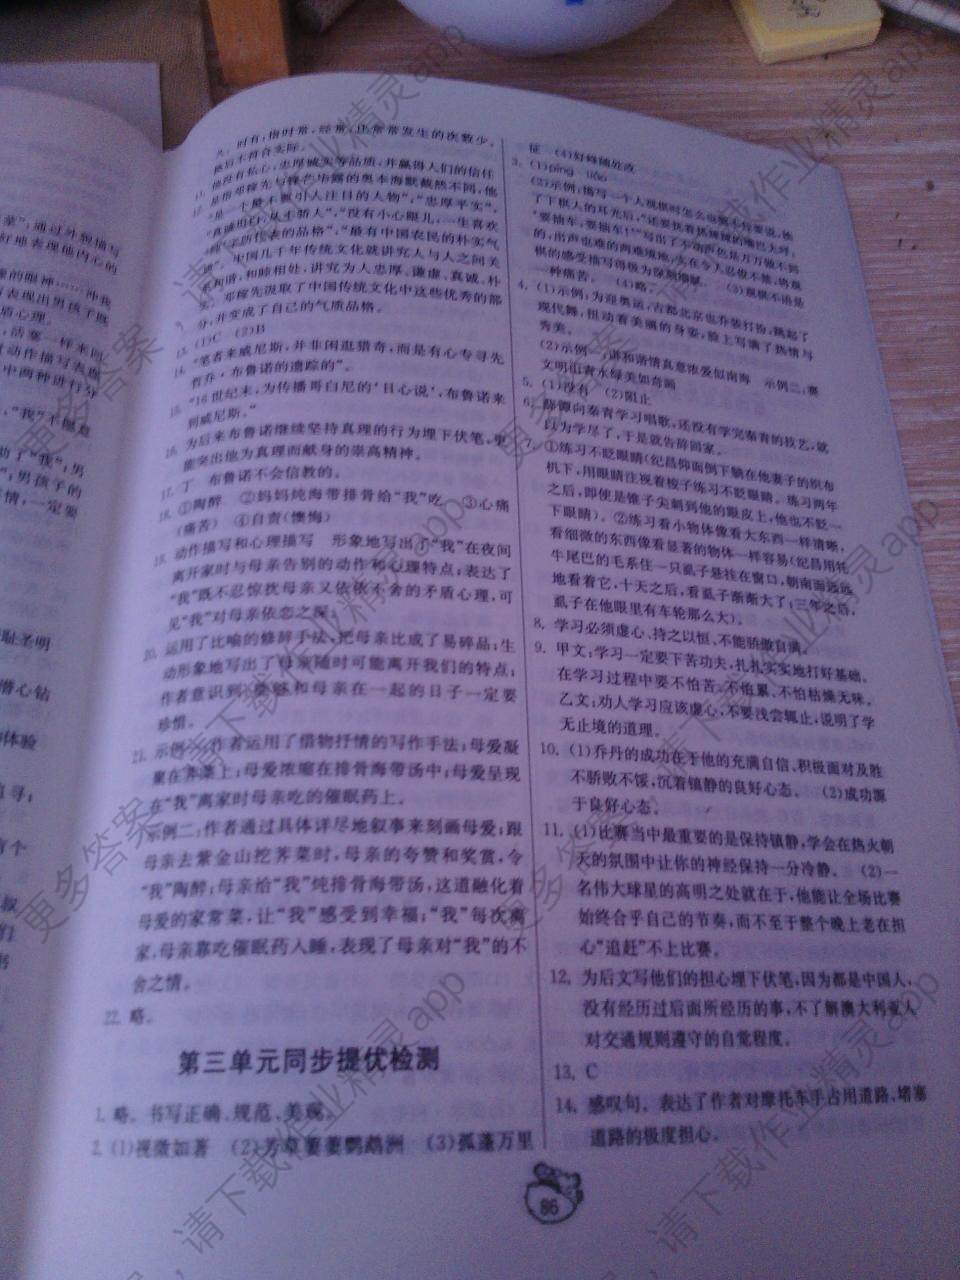 久，时有：指时常，经常，比常常发生的次数少，
换后不符合实际。
11. 他没有私心，忠厚诚实等品质，并赢得人们的信任
12. 是指邓稼先与锋芒毕露的奥本海默截然不同，他
“是一个最不要引人注目的人物”；“忠厚平实”，
“真诚坦白，从不骄人”，“没有小心眼儿，一生喜欢
‘纯’字所代表的品格”，“最有中国农民的朴实气
质”。中国几千年传统文化就讲究人与人之间关
系和谐，和睦相处，讲究为人忠厚、谦虚、真诚、朴
实，邓稼先汲取了中国传统文化中这些优秀的部
分，并变成了自己的气质品格。
13. (1)C (2)B
14. “笔者来威尼斯，并非闲逛猎奇，而是有心专寻先
哲乔·布鲁诺的遗踪的”。
15. “16世纪末，为传播哥白尼的‘日心说’，布鲁诺来
到威尼斯。”
16. 为后来布鲁诺继续坚持真理的行为埋下伏笔，更
能突出他为真理而献身的崇高精神。
17. 丁 布鲁诺不会信教的。
18. ①陶醉 ②妈妈炖海带排骨给“我”吃 ③心痛
(痛苦) ④自责(懊悔)
19. 动作描写和心理描写 形象地写出了“我”在夜间
离开家时与母亲告别的动作和心理特点；表达了
“我”既不忍惊扰母亲又依依不舍的矛盾心理，可
见“我”对母亲依恋之深。
20. 运用了比喻的修辞手法，把母亲比成了易碎品；生
动形象地写出了母亲随时可能离开我们的特点；
作者意识到，能够和母亲在一起的日子一定要
珍惜。
21. 示例一：作者运用了借物抒情的写作手法；母爱凝
聚在荠菜上；母爱浓缩在排骨海带汤中；母爱呈现
在“我”离家时母亲吃的催眠药上。
示例二：作者通过具体详尽地叙事来刻画母爱；跟
母亲去紫金山挖荠菜时，母亲的夸赞和奖赏，令
“我”陶醉；母亲给“我”炖排骨海带汤，这道融化着
母爱的家常菜，让“我”感受到幸福；“我”每次离
家，母亲靠吃催眠药入睡，表现了母亲对“我”的不
舍之情。
22. 略。
第三单元同步提优检测
1. 略。书写正确、规范、美观。
2. (1)视微如著 (2)芳草萋萋鹦鹉洲 (3)孤蓬万里
征 (4)好峰随处改
3. (1)pīng
(2)示例：描写一个人观棋时怎么也憋不住要说，挨
了下棋人的耳光后，“还要抚着热辣辣的嘴巴大呼：
‘要抽车，要抽车！’”写出了不动声色是万万做不到
的，出声也难的两难境地，实在令人忍俊不禁，将观
棋的感受描写得极为深刻细腻。 (3)观棋不语是
一种痛苦。 (4)略。
4. (1)示例：为迎奥运，古都北京也乔装打扮，跳起了
现代舞，扭动着美丽的身姿，脸上写满了热情与
秀美。
(2)示例一：谦和谐情真意浓爱似南海 示例二：赛
文明山青水绿美如奇画
5. (1)没有 (2)阻止
6. 薛谭向秦青学习唱歌，还没有学完秦青的技艺，就
以为学尽了，于是就告辞回家。
7. ①练习不眨眼睛(纪昌仰面倒下躺在他妻子的织布
机下，用眼睛注视着梭子练习不眨眼睛。练习两年
之后，即使是锥子尖刺到他的眼皮上，他也不眨一
下眼睛)。②练习看小物体像看大东西一样清晰，
看细微的东西像看显著的物体一样容易(纪昌用牦
牛尾巴的毛系住一只虱子悬挂在窗口，朝南面远远
地看着它，十天之后，看虱子渐渐大了；三年之后，
虱子在他眼里有车轮那么大)。
8. 学习必须虚心、持之以恒、不能骄傲自满。
9. 甲文：学习一定要下苦功夫，扎扎实实地打好基础。
在学习过程中要不怕苦、不怕累、不怕枯燥无味。
乙文：劝人学习应该虚心，不要浅尝辄止，说明了学
无止境的道理。
10. (1)乔丹的成功在于他的充满自信、积极面对及胜
不骄败不馁，沉着镇静的良好心态。 (2)成功源
于良好心态。
11. (1)比赛当中最重要的是保持镇静，学会在热火朝
天的氛围中让你的神经保持一分冷静。 (2)一
名伟大球星的高明之处就在于，他能让全场比赛
始终合乎自己的节奏，而不至于整个晚上老在担
心“追赶”不上比赛。
12. 为后文写他们的担心埋下伏笔，因为都是中国人，
没有经历过后面所经历的事，不了解澳大利亚人
对交通规则遵守的自觉程度。
13. C
14. 感叹句。表达了作者对摩托车手占用道路、堵塞
道路的极度担心。
86
更多答案，请下载作业精灵.app